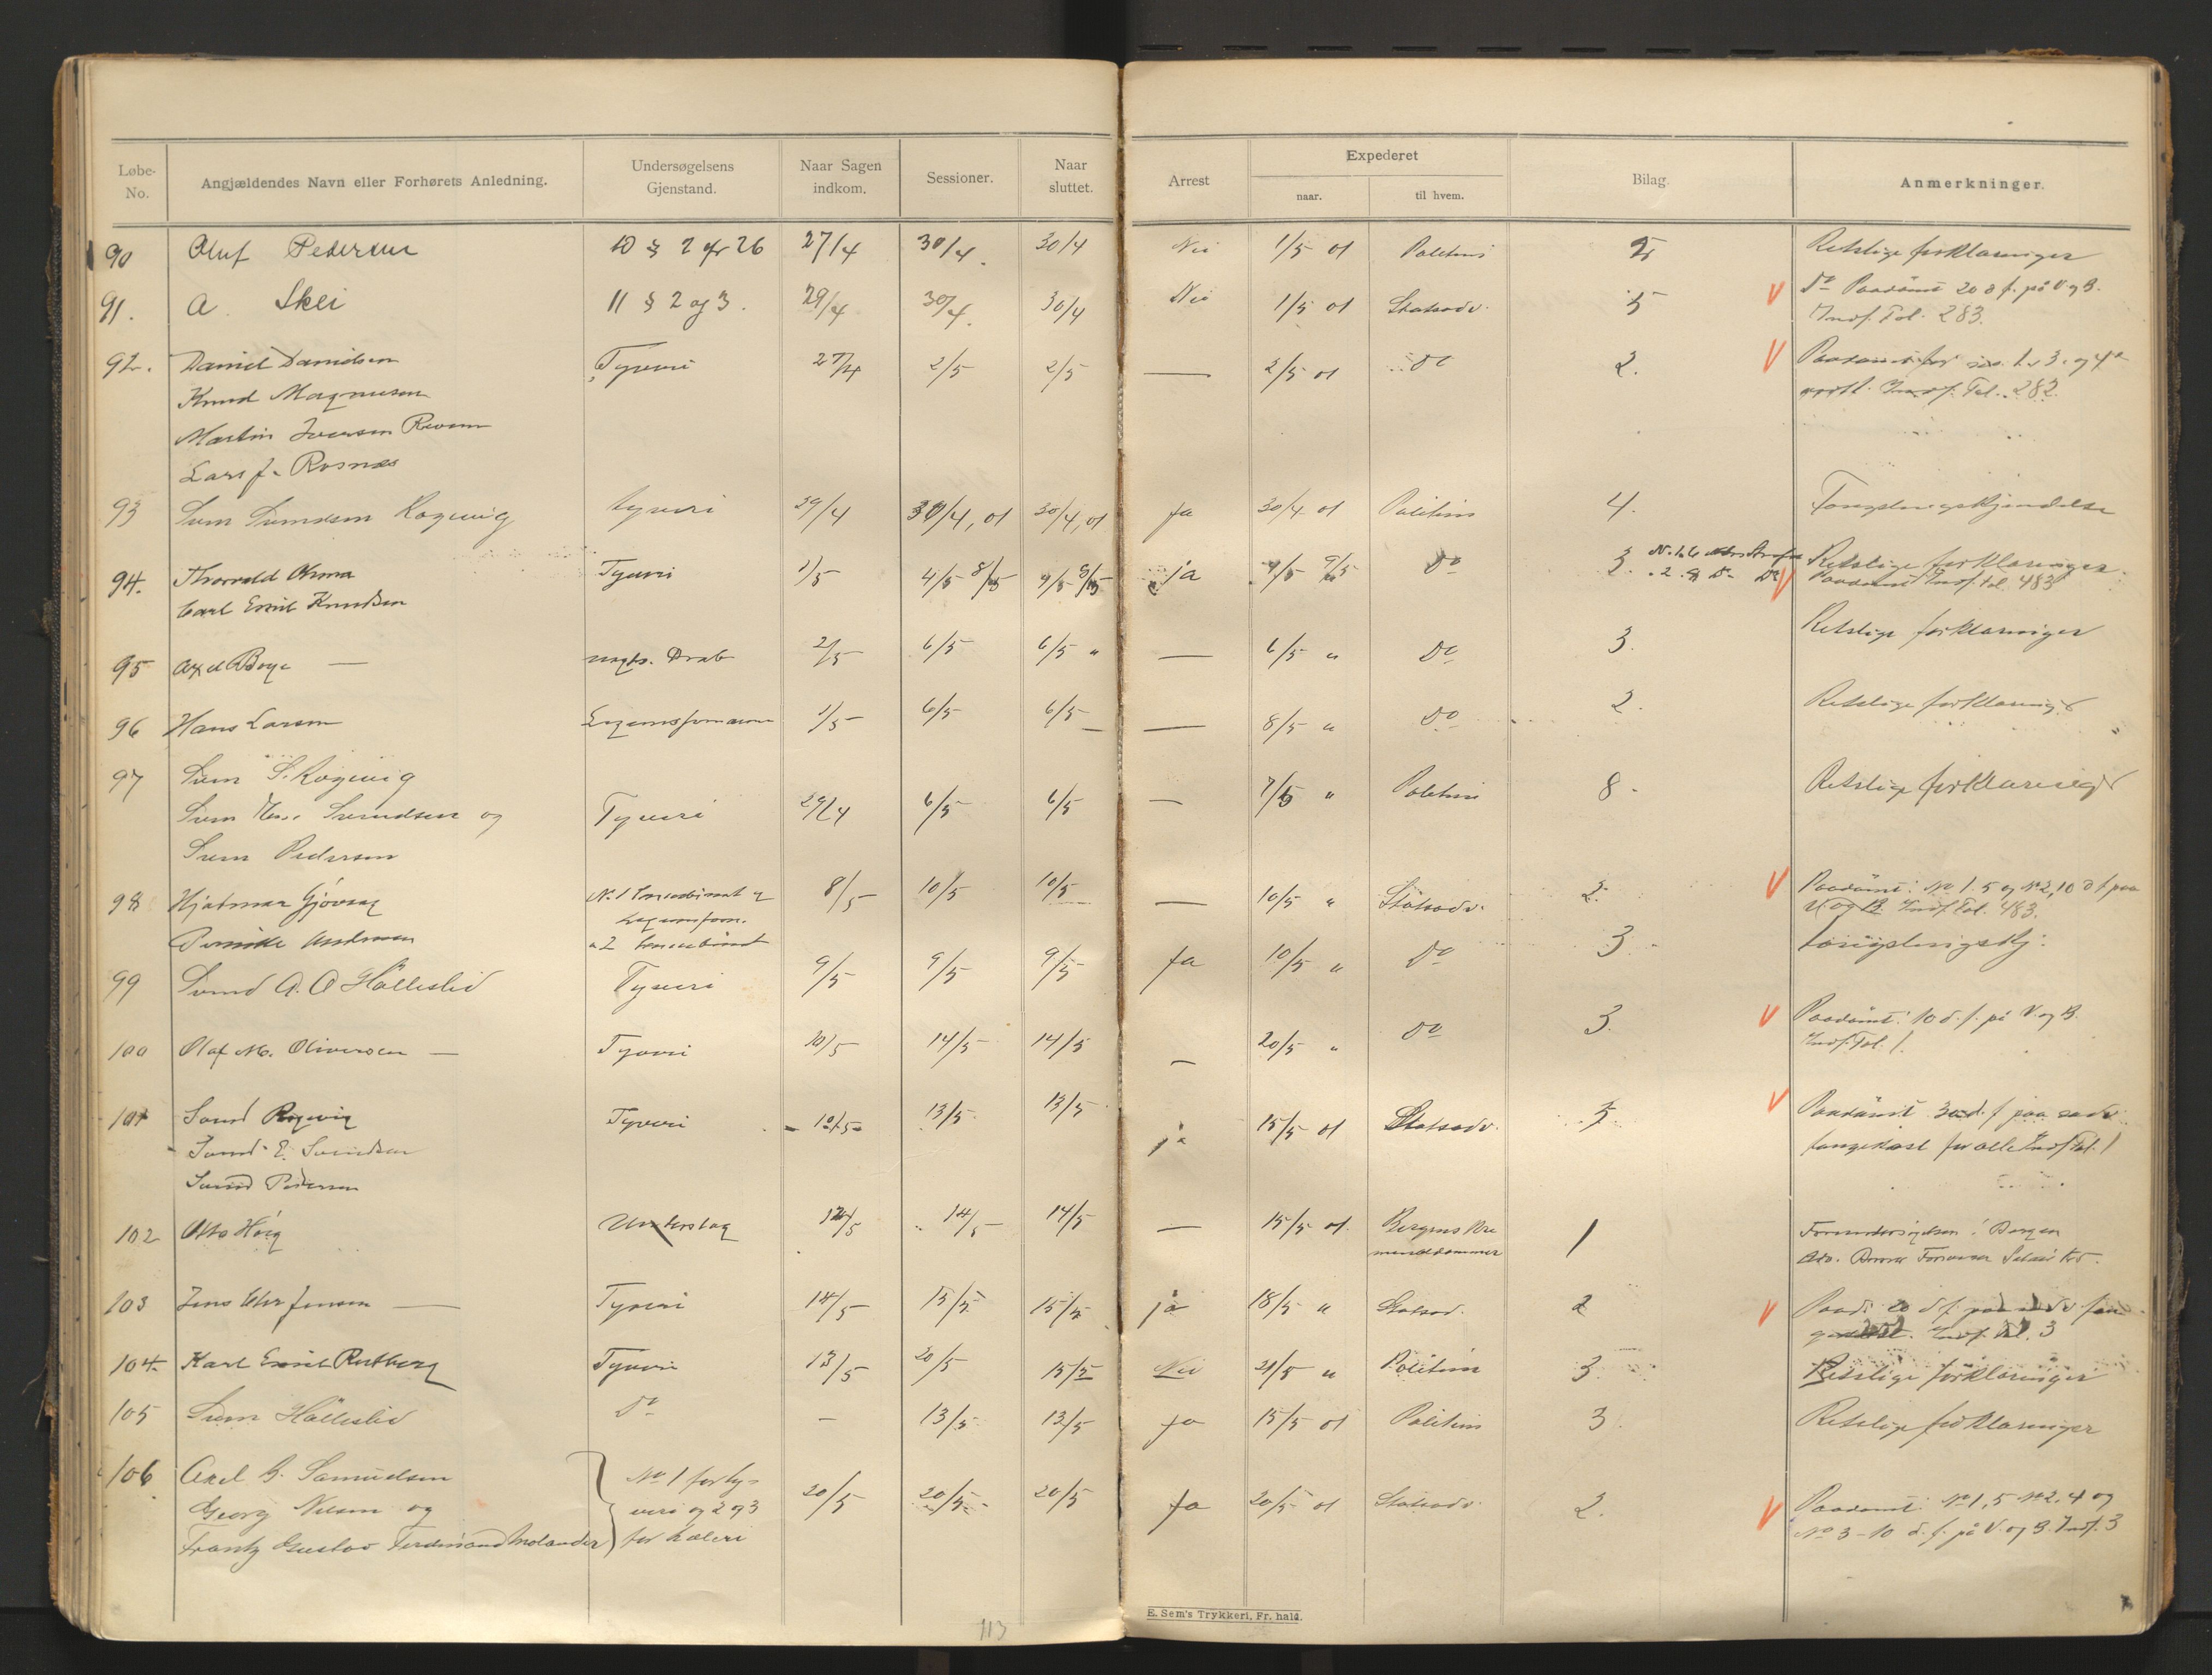 Løbe-No. Angjældendes Navn eller Forhørets Anledning. Undersøgelsens Gjenstand. Naar Sagen indkom. Sessioner. Naar sluttet. Arrest Expederet naar. til hvem. Bilag. Anmerkninger.
90 Oluf Pedersen 10 § 2 jfr 26 27/4 30/4 30/4 Nei 1/5 01 Politiet 2 Retslige forklaringer
91. A Skei 11 § 2 og 3. 29/4 30/4 30/4 Nei 1/5 01 Statsadv. 5 V Do Paadömt 20 d f. på V. og B.
Indf. Fol. 283.
92. Daniel Danielsen Tyveri 27/4 2/5 2/5 — 2/5 01 Do 2. V Paadömt for 1. 3. og 4
Knud Magnussen Indf. Fol. 282
Martin Iversen Revem
Lars J. Rosnæs
93 Sven Svendsen Rogevig tyveri 29/4 30/4, 01 30/4, 01 Ja 30/4 01 Politiet 4. Fængslingskjendelse
94. Thorvald Tyveri 1/5 4/5 8/5 ja 9/5 Do 3. Retslige forklaringer
Carl Emil Knudsen V Paadömt Indf. Fol. 483
95 Axel Boye — uagts. Drab 2/5 6/5 6/5 " — 6/5 " Do 3. Retslige forklaringer
96 Hans Larsen Legemsfornærm 1/5 6/5 6/5 — 8/5 " Do 2. Retslige forklaringer
97 Sven S. Rogevig
Sven Svendsen og Tyveri 29/4 6/5 6/5 — 7/5 " Politiet 8 Retslige forklaringer
Sven Pedersen
98 Hjalmar Gjövaag No. 1 og 8/5 10/5 10/5 — 10/5 " Statsadv. 2. V Paadömt: No 1. 5 og No 2, 10 d f paa
Legemsforn. V og B. Indf. Fol. 483.
Andersen " 2
99 Svend A. O Hölleslid Tyveri 9/5 9/5 9/5 Ja 10/5 " Do 3 Fængslingskj.
100 Olaf M. Oliversen — Tyveri 10/5 14/5 14/5 — 20/5 " Do 3. V Paadömt: 10 d. f. på V. og B.
Indf. Fol. 1.
101 Svend Rogevig Tyveri 10/5 13/5 13/5 ja 15/5 01 Statsadv. 5 V Paadömt 30 d. f paa sædv.
Svend E. Svendsen fangekost for alle Indf Fol. 1
Svend Pedersen
102 Otto Höeg Underslag 14/5 14/5 — 15/5 01. Bergens 1 Forundersögelsen i Bergen
103 Jens Jensen — Tyveri 14/5 15/5 15/5 ja 18/5 " Statsad. 2 V Paad. 20 d f. paa sædv fan-
Indf. Fol. 3
104. Karl Emil Rutberg Tyveri 13/5 20/5 15/5 Nei 21/5 " Politiet 3. Retslige forklaringer
105 Sven Hölleslid Do — 13/5 13/5 Ja 15/5 01 Politiet 3. Retslige forklaringer
106 Axel G. Samuelsen No 1 for ty-
Georg Nilsen og veri og 2 og 3 20/5 20/5 20/5 Ja 20/5 01 Statsadv. 2. V Paadömt: No 1, 5 No 2, 4 og
Frantz Gustav Ferdinand Molander for hæleri No 3 - 10 d. f. på V. og B. Indf. 3
E. Sem's Trykkeri, Fr. hald.
113